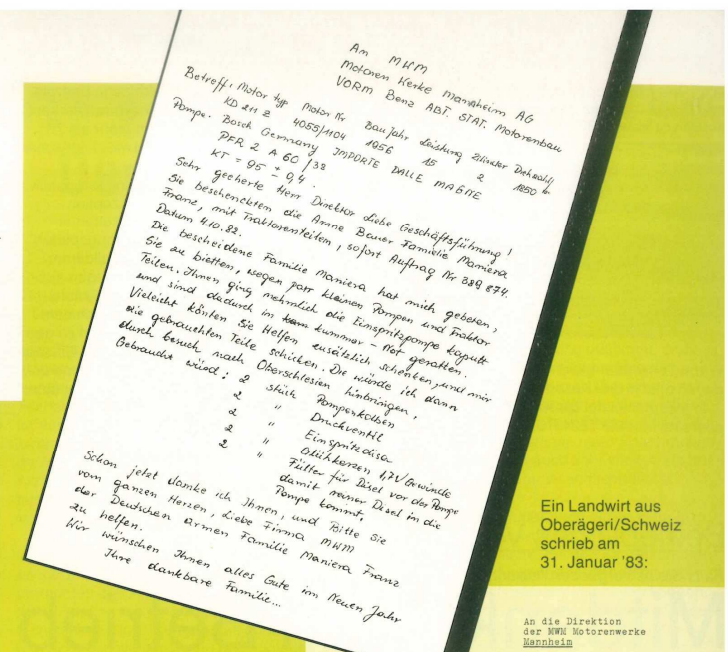 An MWM
Motoren Werke Mannheim AG
VORM Benz ABT. STAT. Motorenbau
Betreff: Motor typ Motor Nr Baujahr Leistung Zilinder Drehzahl
KD 211 Z 4055/1104 1956 15 2 1850
Pompe. Bosch Germany IMPORTE DALLE MAGNE
PFR 2 A 60/38
KT = 95 ± 0,4.
Sehr geeherte Herr Direktor Liebe Geschäftsführung!
Sie beschenckten die Arme Bauer Familie Maniera
Franz, mit Traktorenteilen, sofort Auftrag Nr 389 874.
Datum 4.10.82.
Die bescheidene Familie Maniera hat mich gebeten,
Sie zu bietten, wegen parr kleinen Pompen und Traktor
Teilen. Ihnen ging nehmlich die Einspritzpompe kaputt
und sind dadurch in kummer - Not geratten.
Vieleicht könten Sie Helfen zusätzlich schenken, und mir
die gebrauchten Teile schicken. Die würde ich dann
durch besuch nach Oberschlesien hinbringen.
Gebraucht wird: 2 stück Pompenkolben
2 " Druckventil
2 " Einspritzdisa
2 " Glühkerzen 1,7V Gewinde
2 " Fülter für Disel vor der Pompe
damit reiner Disel in die
Pompe kommt.
Schon jetzt danke ich Ihnen, und Bitte Sie
vom ganzen Herzen, Liebe Firma MWM
der Deutschen armen Familie Maniera Franz
zu helfen.
Wir wünschen Ihnen alles Gute im Neuen Jahr
Ihre dankbare Familie...
Ein Landwirt aus
Oberägeri/Schweiz
schrieb am
31. Januar '83:
An die Direktion
der MWM Motorenwerke
Mannheim